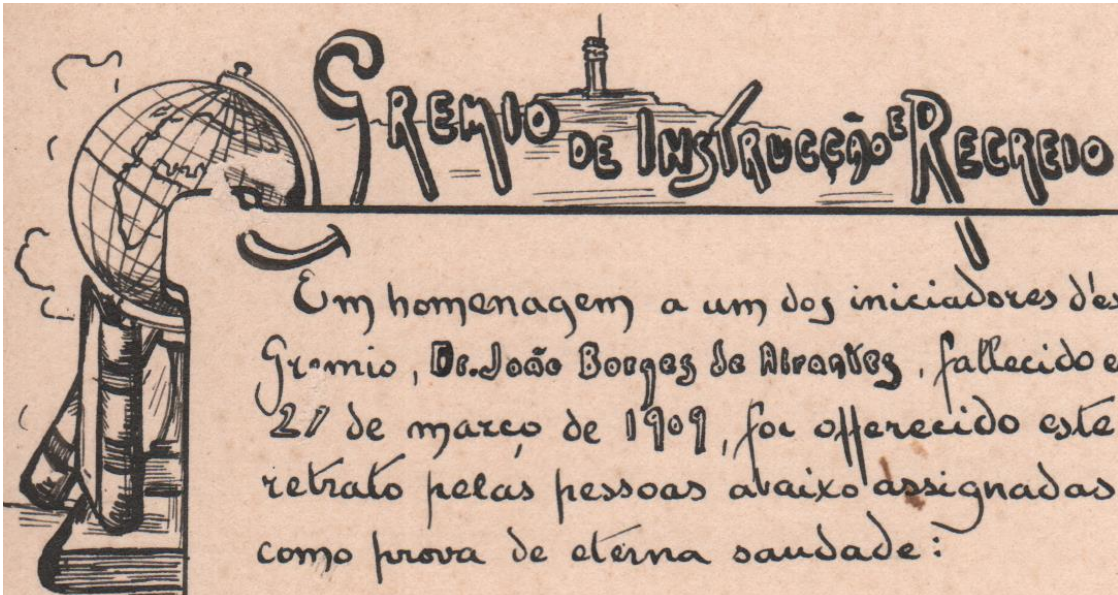 GREMIO DE INSTRUCÇÃO E RECREIO
Em homenagem a um dos iniciadores d'es
Gremio, Dr. João Borges de Abrantes, fallecido e
27 de março de 1909, foi offerecido este
retrato pelas pessoas abaixo assignadas
como prova de eterna saudade: